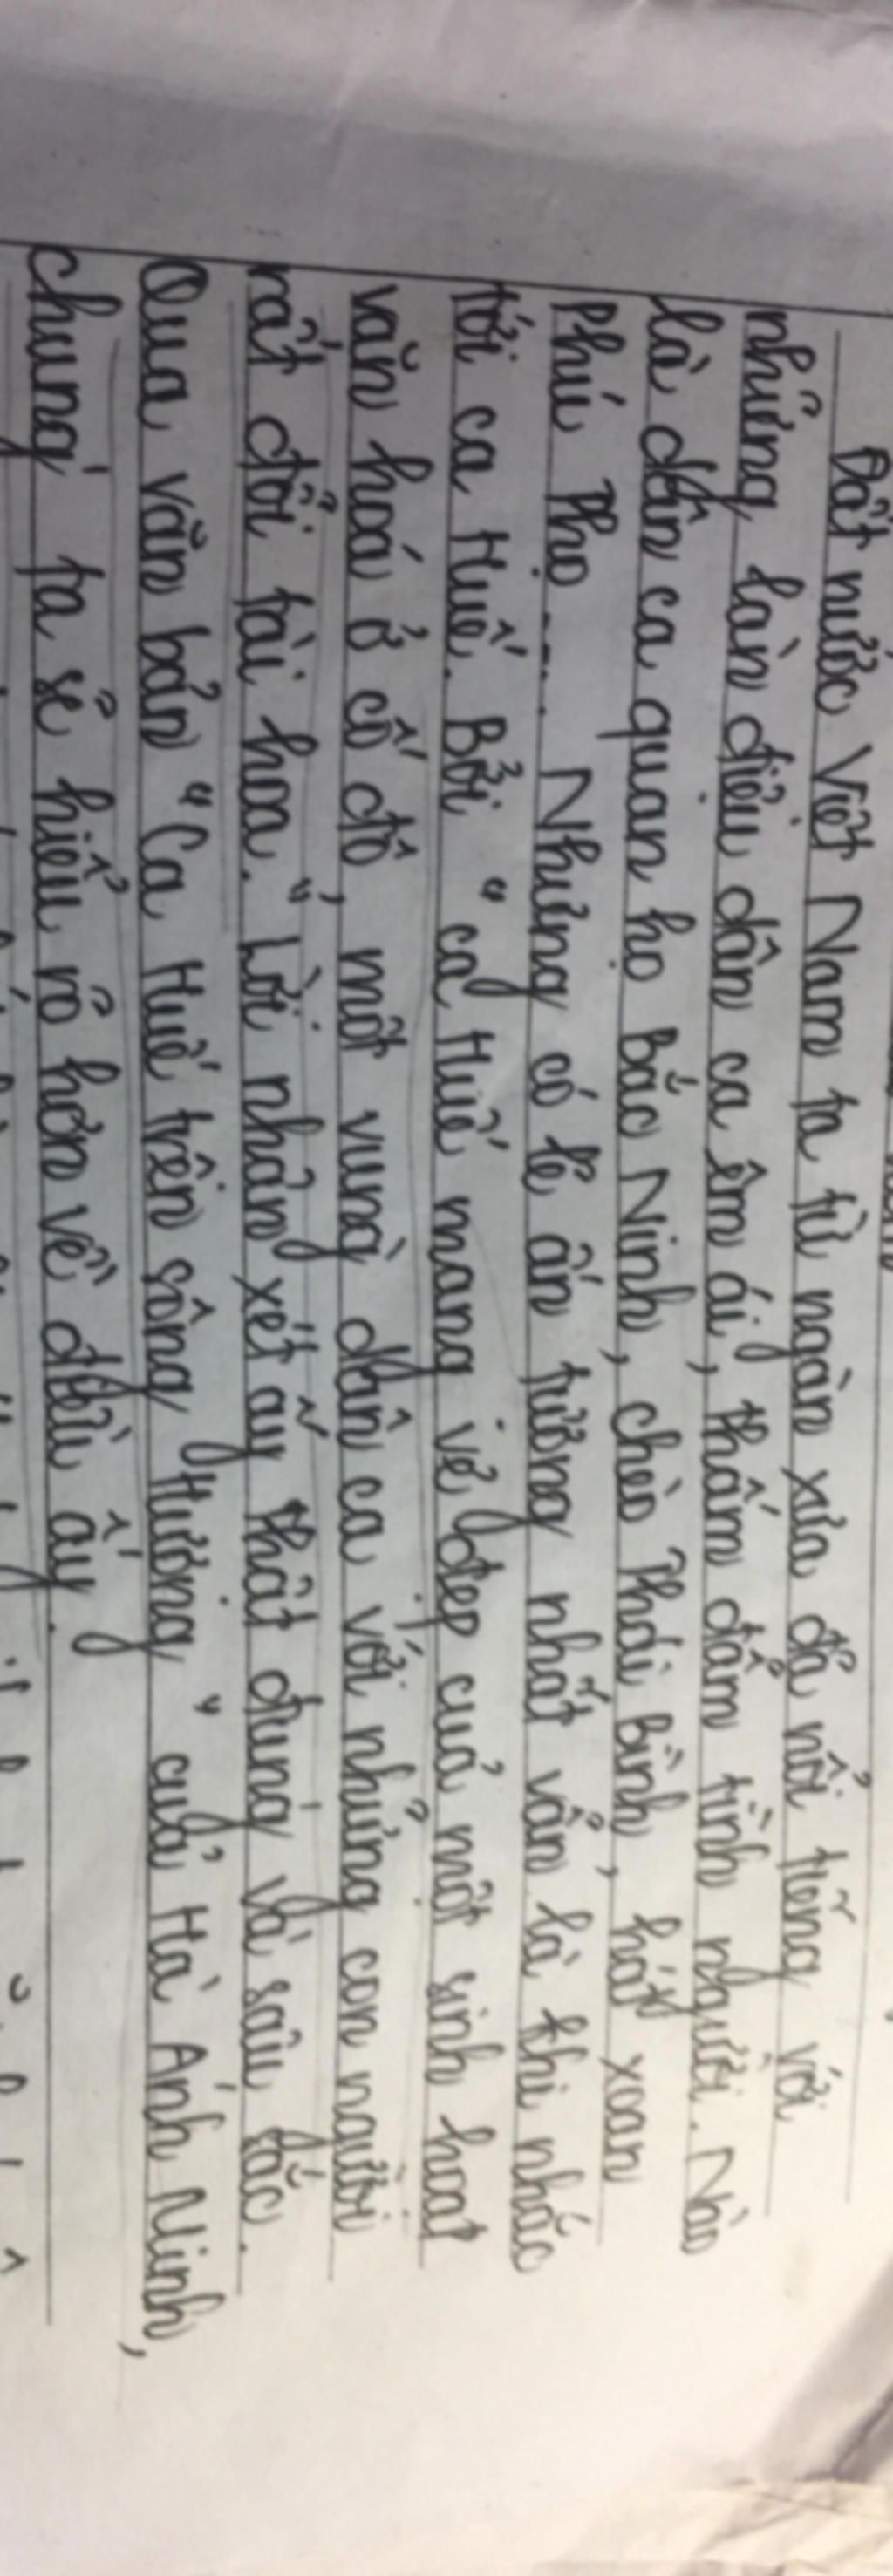 Đất nước Việt Nam ta từ ngàn xưa đã nổi tiếng với
những làn điệu dân ca êm ái, thắm đẫm tình người. Nào
là dân ca quan họ Bắc Ninh, chèo Thái Bình, hát xoan
Phú Thọ.... Nhưng có lẽ ấn tượng nhất vẫn là khi nhắc
tới ca Huế. Bởi "ca Huế mang vẻ đẹp của một sinh hoạt
văn hoá ở cố đô, một vùng dân ca với những con người
rất đỗi tài hoa." Lời nhận xét ấy thật đúng và sâu sắc.
Qua văn bản "Ca Huế trên sông Hương" của Hà Ánh Minh,
chúng ta sẽ hiểu rõ hơn về điều ấy.